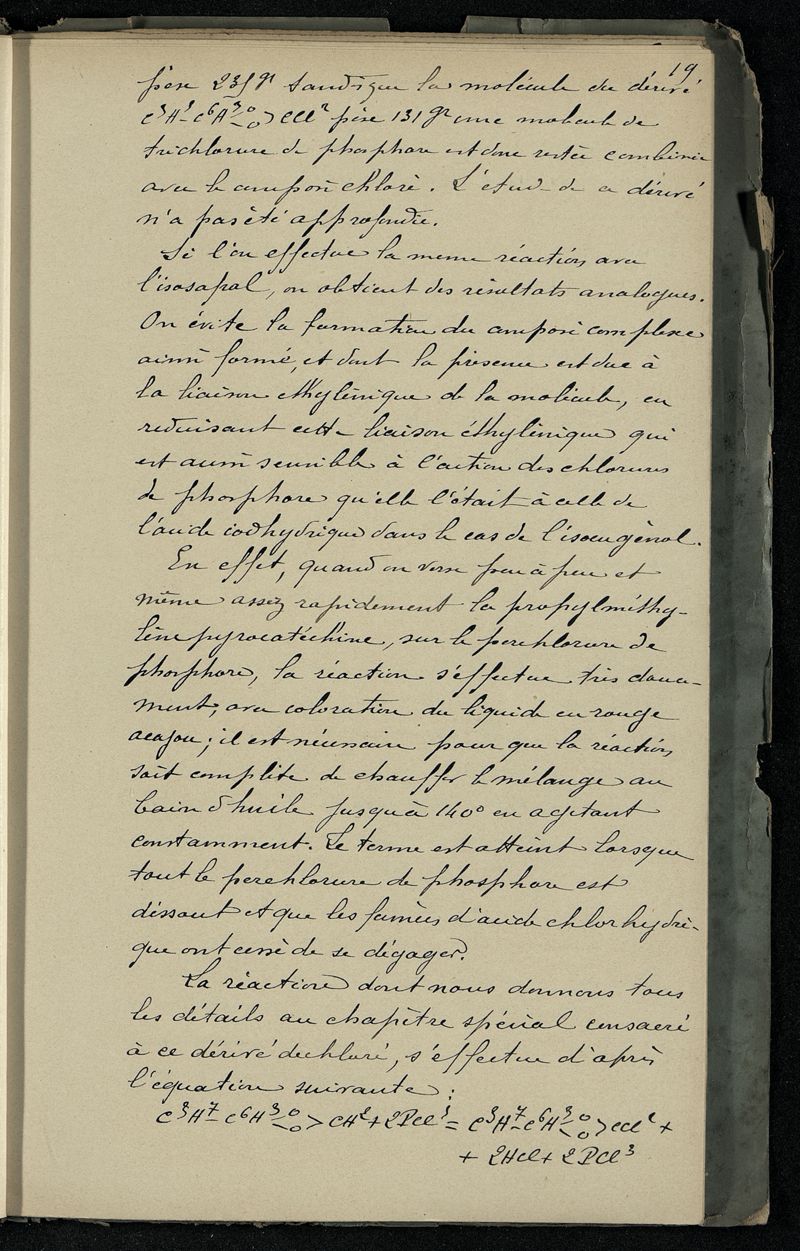 19
pèse 231 gr tandis que la molécule du dérivé
C³H⁵-C⁶H³-O-O>CCl² pèse 131 gr une molécule de
trichlorure de phosphore est donc restée combinée
avec le composé chloré. L'étude de ce dérivé
n'a pas été approfondie.
Si l'on effectue la meme réaction avec
l'isosafrol, on obtient des résultats analogues.
On évite la formation du composé complexe
ainsi formé, et dont la présence est due à
la liaison ethylénique de la molécule, en
reduisant cette liaison éthylénique qui
est aussi sensible à l'action des chlorures
de phosphore qu'elle l'était à celle de
l'acide iodhydrique dans le cas de l'isoeugénol.
En effet, quand on verse peu à peu et
même assez rapidement la propylméthy-
lène pyrocatéchine, sur le perchlorure de
phosphore, la réaction s'effectue très douce-
ment, avec coloration du liquide en rouge
acajou; il est nécessaire pour que la réaction
soit complète de chauffer le mélange au
bain d'huile jusqu'à 140° en agitant
constamment. Le terme est atteint lorsque
tout le perchlorure de phosphore est
dissout et que les fumées d'acide chlorhydri-
que ont cessé de se dégager.
La réaction dont nous donnons tous
les détails au chapitre spécial consacré
à ce dérivé dichloré, s'effectue d'après
l'équation suivante:
C³H⁷-C⁶H³-O-O>CH²+2PCl⁵= C³H⁷-C⁶H³-O-O>CCl²+
+ 2HCl+2PCl³